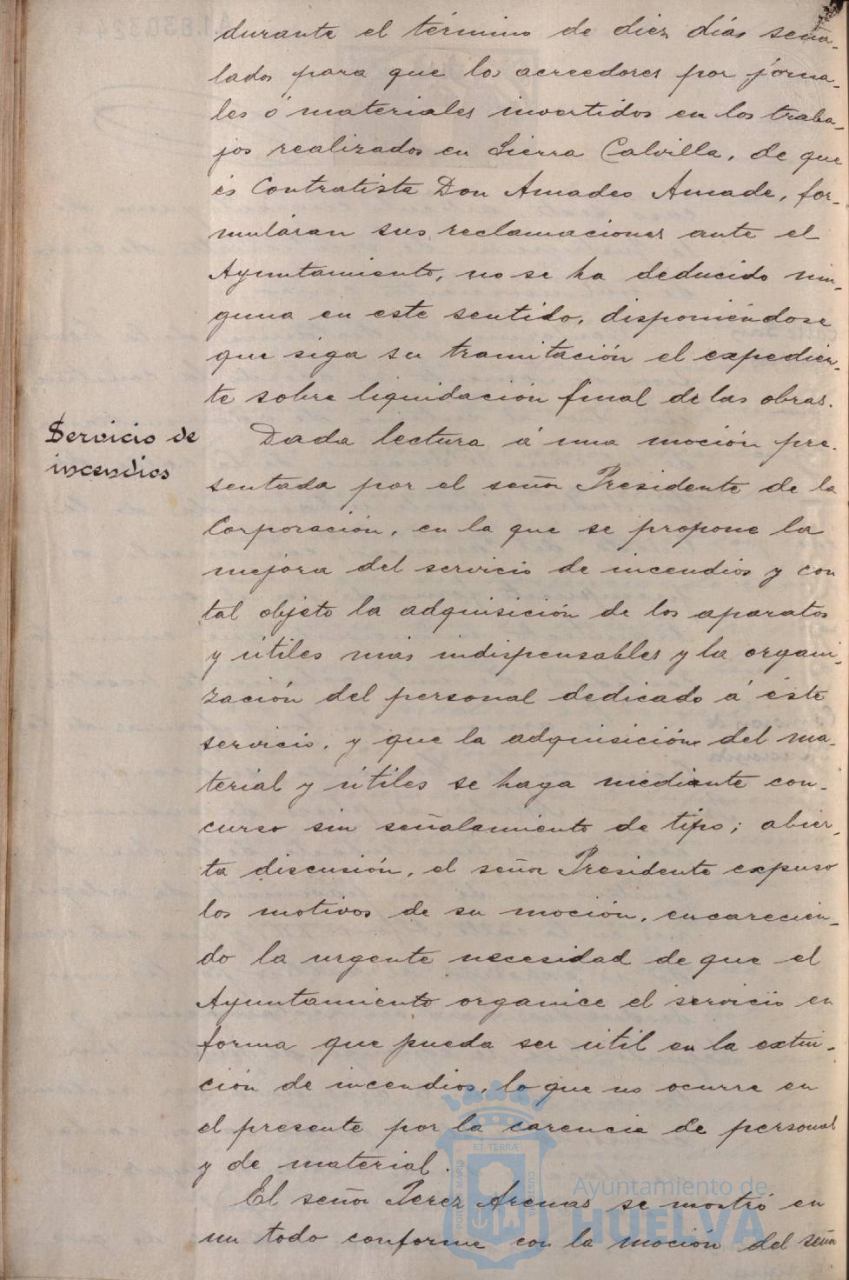 durante el término de diez días seña-
lados para que los acreedores por jorna-
les ó materiales invertidos en los traba-
jos realizados en Sierra Calvilla, de que
és Contratista Don Amadeo Amade, for-
muláran sus reclamaciones ante el
Ayuntamiento, no se ha deducido nin-
guna en este sentido, disponiéndose
que siga su tramitación el expedien-
te sobre liquidación final de las obras.
Servicio de
incendios
Dada lectura á una moción pre-
sentada por el señor Presidente de la
Corporación, en la que se propone la
mejora del servicio de incendios y con
tal objeto la adquisición de los aparatos
y útiles más indispensables y la organi-
zación del personal dedicado á éste
servicio, y que la adquisición del ma-
terial y útiles se haga mediante con-
curso sin señalamiento de tipo; abier-
ta discusión, el señor Presidente expuso
los motivos de su moción, encarecien-
do la urgente necesidad de que el
Ayuntamiento organice el servicio en
forma que pueda ser útil en la extin-
ción de incendios, lo que no ocurre en
el presente por la carencia de personal
y de material.
El señor Perez Arenas se mostró en
un todo conforme con la moción del señor
Ayuntamiento de
HUELVA